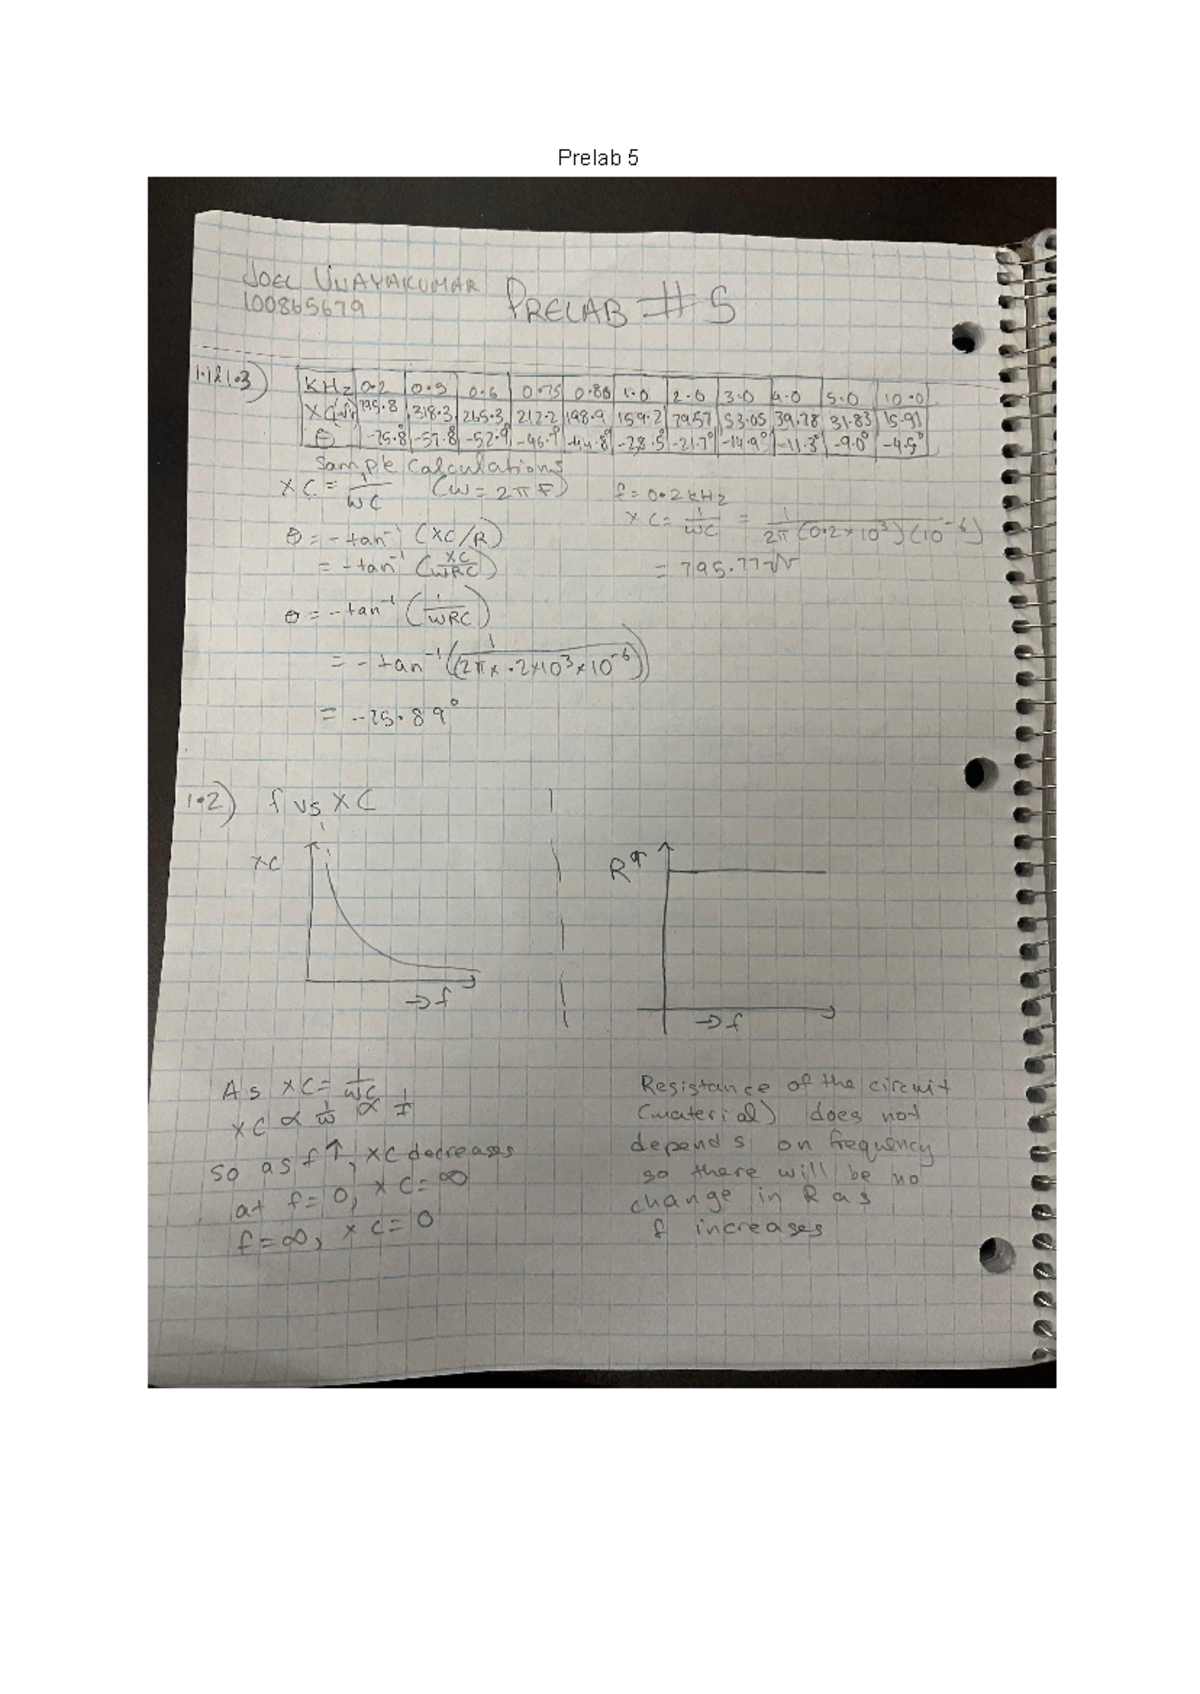 Prelab 5
JOEL VIJAYAKUMAR
100865679
PRELAB #5
1.1&1.3)
KHz 0.2 0.5 0.6 0.75 0.80 1.0 2.0 3.0 4.0 5.0 10.0
XC 795.8 318.3 265.3 212.2 198.9 159.2 79.57 53.05 39.78 31.83 15.91
θ -75.8° -57.8 -52.9° -46.7° -44.8° -38.5° -21.7° -14.9° -11.3° -9.0° -4.5°
Sample Calculations
XC = 1/WC (W = 2πF)
f = 0.2 kHz
XC = 1/WC = 1/2π(0.2×10³)(10⁻⁶)
= 795.77
θ = -tan⁻¹ (XC/R)
= -tan⁻¹ (XC/WRC)
θ = -tan⁻¹ (1/WRC)
= -tan⁻¹ (1/(2π×.2×10³×10⁻⁶))
= -75.89°
1.2) f vs XC
XC
→f
R↑
→f
As XC = 1/WC
XC ∝ 1/W ∝ 1/f
so as f↑, XC decreases
at f = 0, XC = ∞
f = ∞, XC = 0
Resistance of the circuit
(material) does not
depends on frequency
so there will be no
change in R as
f increases